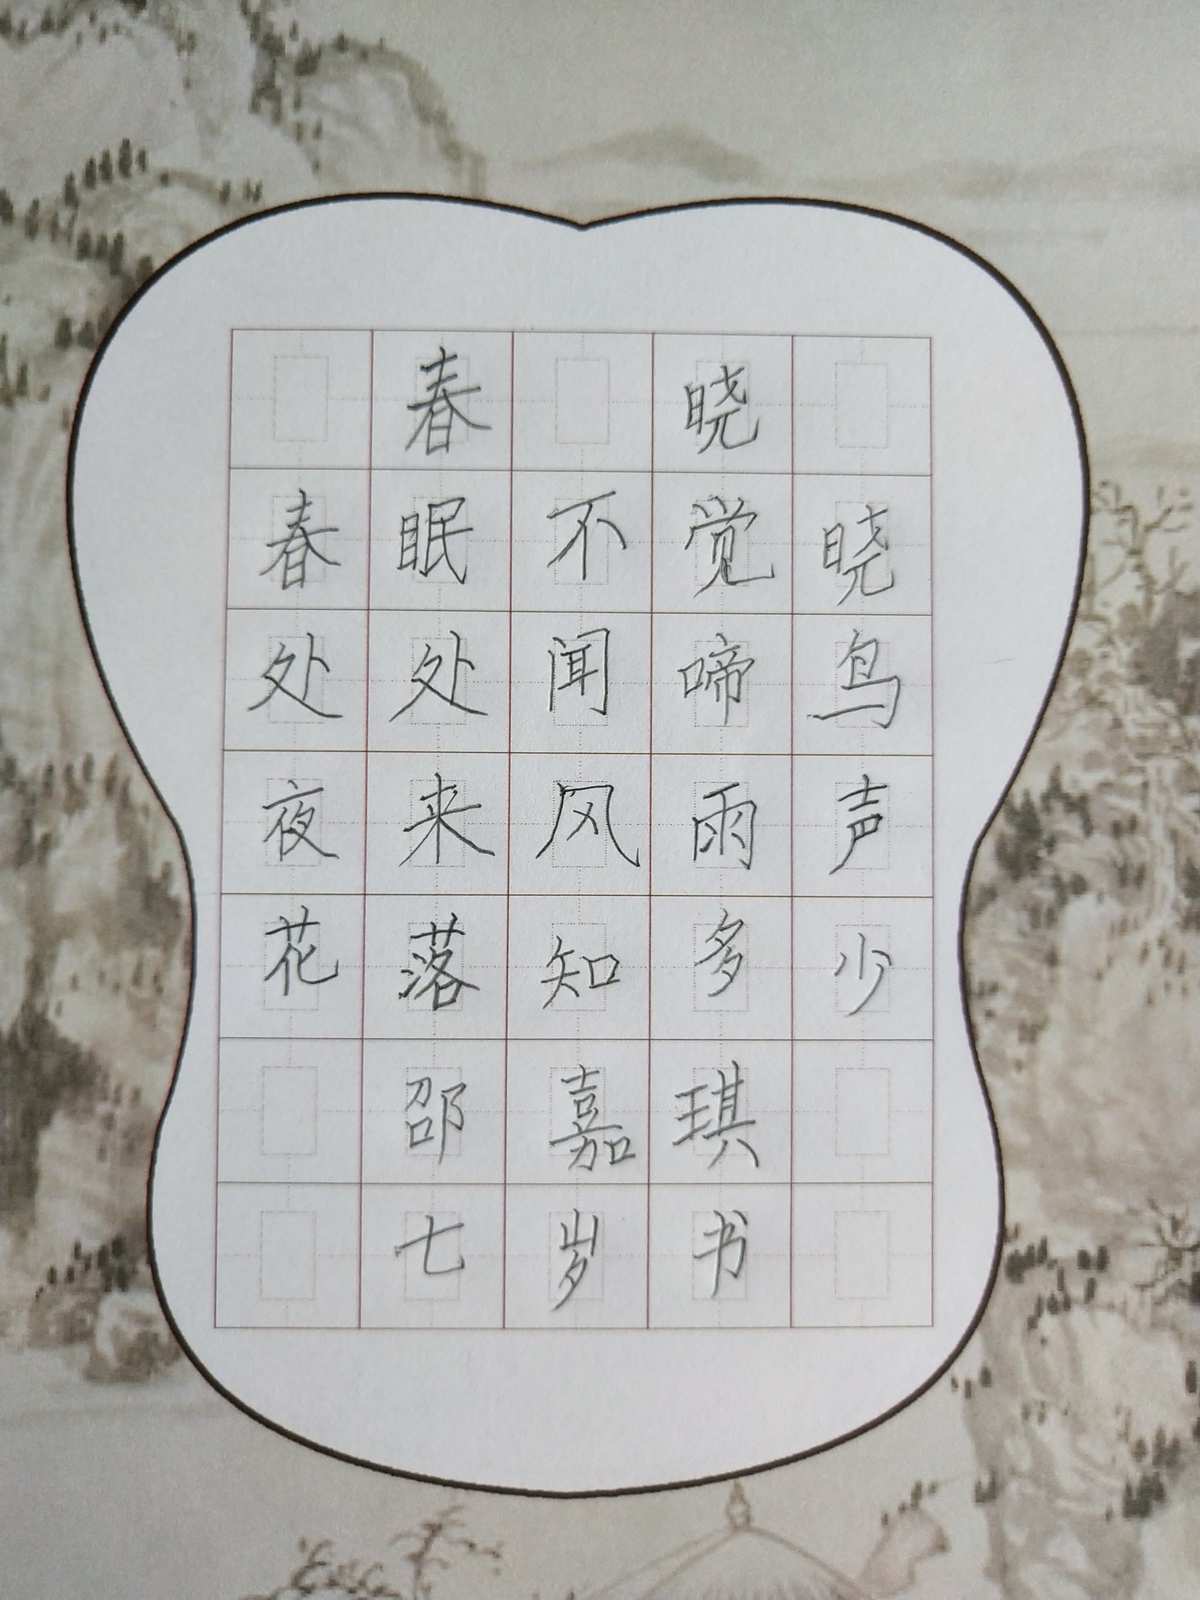 春晓
春眠不觉晓
处处闻啼鸟
夜来风雨声
花落知多少
邵嘉琪
七岁书